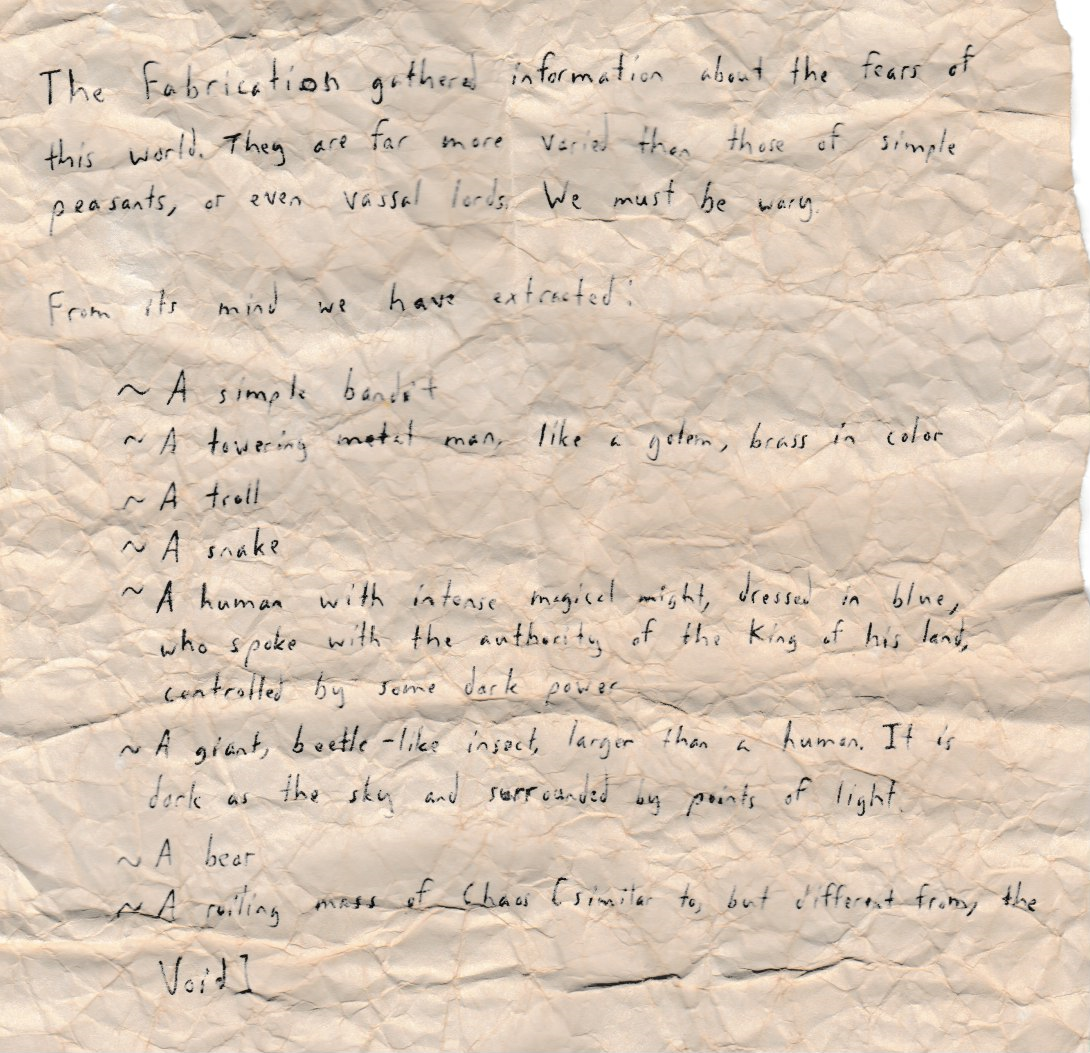 The Fabrication gathered information about the fears of
this world. They are far more varied than those of simple
peasants, or even vassal lords. We must be wary.
From its mind we have extracted:
~ A simple bandit
~ A towering metal man, like a golem, brass in color
~ A troll
~ A snake
~ A human with intense magical might, dressed in blue,
who spoke with the authority of the King of his land,
controlled by some dark power
~ A giant, beetle-like insect, larger than a human. It is
dark as the sky and surrounded by points of light.
~ A bear
~ A roiling mass of Chaos [similar to, but different from, the
Void]